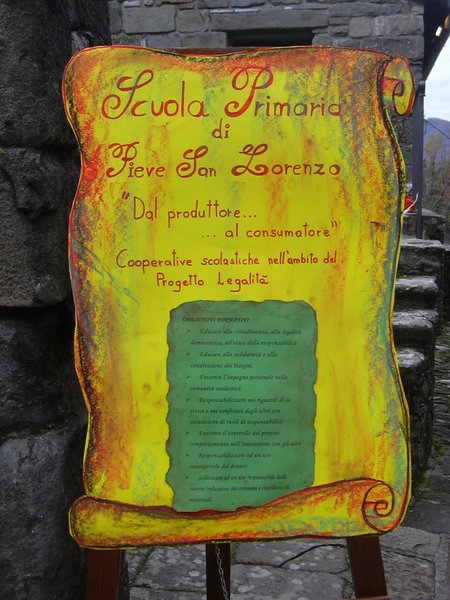 Scuola Primaria
di
Pieve San Lorenzo
"Dal produttore...
... al consumatore"
Cooperative scolastiche nell'ambito del
Progetto Legalità
OBIETTIVI FORMATIVI
➤ Educare alla cittadinanza, alla legalità
democratica, all'etica della responsabilità
➤ Educare alla solidarietà e alla
condivisione dei bisogni
➤ Favorire l'impegno personale nella
comunità scolastica
➤ Responsabilizzare nei riguardi di se
stessi e nei confronti degli altri con
assunzione di ruoli di responsabilità
➤ Favorire il controllo del proprio
comportamento nell'interazione con gli altri
➤ Responsabilizzare ad un uso
consapevole del denaro
➤ Sollecitare ad un uso responsabile delle
risorse (riduzione dei consumi e riutilizzo di
materiali)